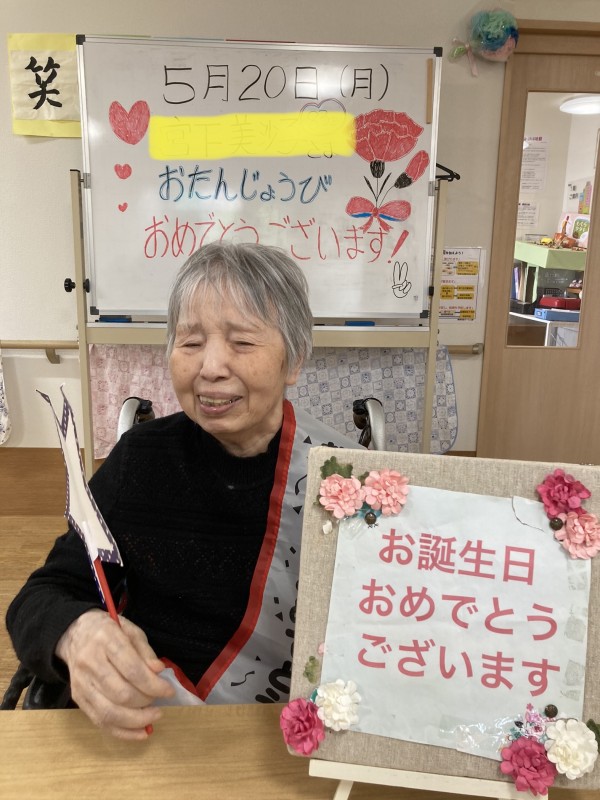 笑
5月20日(月)
おたんじょうび
おめでとうございます!
お誕生日
おめでとう
ございます